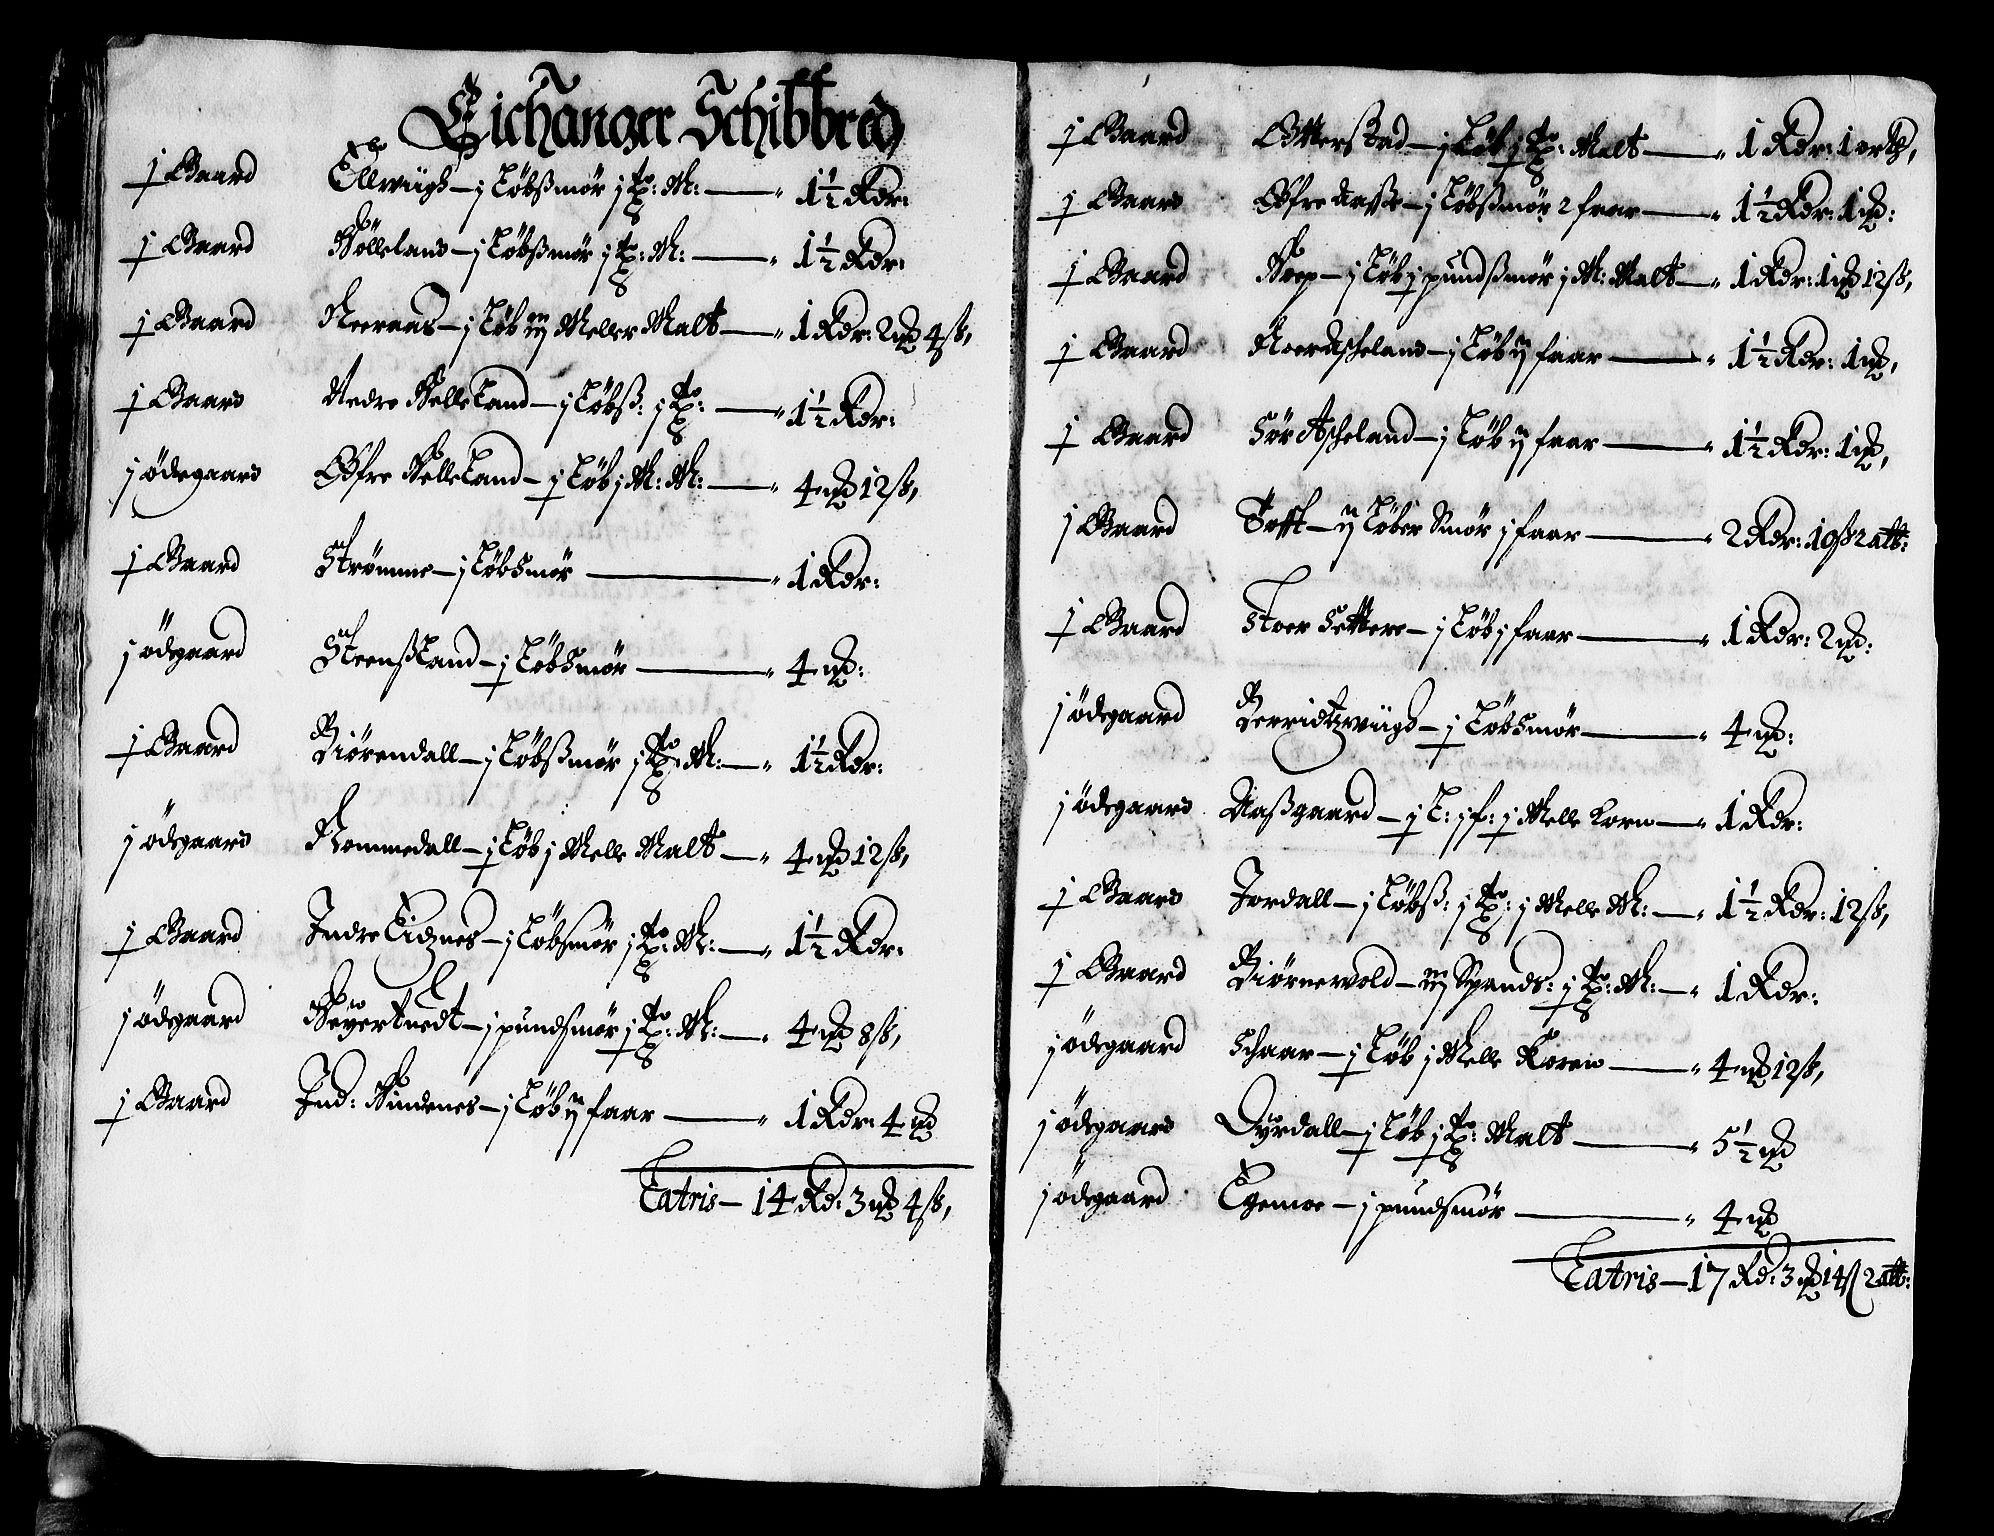 Eichanger Schibbred
j Gaard Ellwiigh — j Løbßmør j tp: M: — 1½ Rdr:
j Gaard Kølleland — j Løbßmør j tp: M: — 1½ Rdr:
j Gaard Neeraas — j Løb iij Meller Malt — 1 Rdr: 2 mk 4 ß,
j Gaard Nedre Kelleland — j Løbß: j tp: — 1½ Rdr:
j ødegaard Øfre Kelleland — j Løb j M: M: — 4 mk 12 ß,
j Gaard Strømme — j Løbsmør — 1 Rdr:
j ødegaard Steenßland — j Løbsmør — 4 mk:
j Gaard Biørendall — j Løbßmør j tp: M: — 1½ Rdr:
j ødegaard Rommedall — j Løb j Melle Malt — 4 mk 12 ß,
j Gaard Indre Eidznes — j Løbsmør j tp: M: — 1½ Rdr:
j ødegaard Køyertuedt — j pundsmør j tp: M: — 4 mk 8 ß,
j Gaard Ind: Kindenes — j Løb ij faar — 1 Rdr: 4 mk
Latris — 14 Rd: 3 mk 4 ß,
j Gaard Otterstad — j Løb j tp: Malt — 1 Rdr: 1 orth,
j Gaard Øfre Aaße — j Løbßmør 2 faar — 1½ Rdr: 1 mk:
j Gaard Krep — j Løb j pundßmør j M: Malt — 1 Rdr: 1 mk 12 ß,
j Gaard Noer Ascheland — j Løb ij faar — 1½ Rdr: 1 mk,
j Gaard Sør Ascheland — j Løb ij faar — 1½ Rdr: 1 mk,
j Gaard Tofft — ij Løber Smør j faar — 2 Rdr: 10 ß 2 alb:
j Gaard Stoer Settere — j Løb j faar — 1 Rdr: 2 mk:
j ødegaard Berridtzwiigh — j Løbsmør — 4 mk:
j ødegaard Naßgaard — j L: j f: j Melle Korn — 1 Rdr:
j Gaard Jordall — j Løbß: j tp: j Melle M: — 1½ Rdr: 12 ß,
j Gaard Biørnevold — iij Spands: j tp: M: — 1 Rdr:
j ødegaard Schaar — j Løb j Melle Koren — 4 mk 12 ß,
j ødegaard Dyrdall — j Løb j tp: Malt — 5½ mk
j ødegaard Egemoe — j pundsmør — 4 mk
Latris — 17 Rd: 3 mk 14 ß 2 alb: